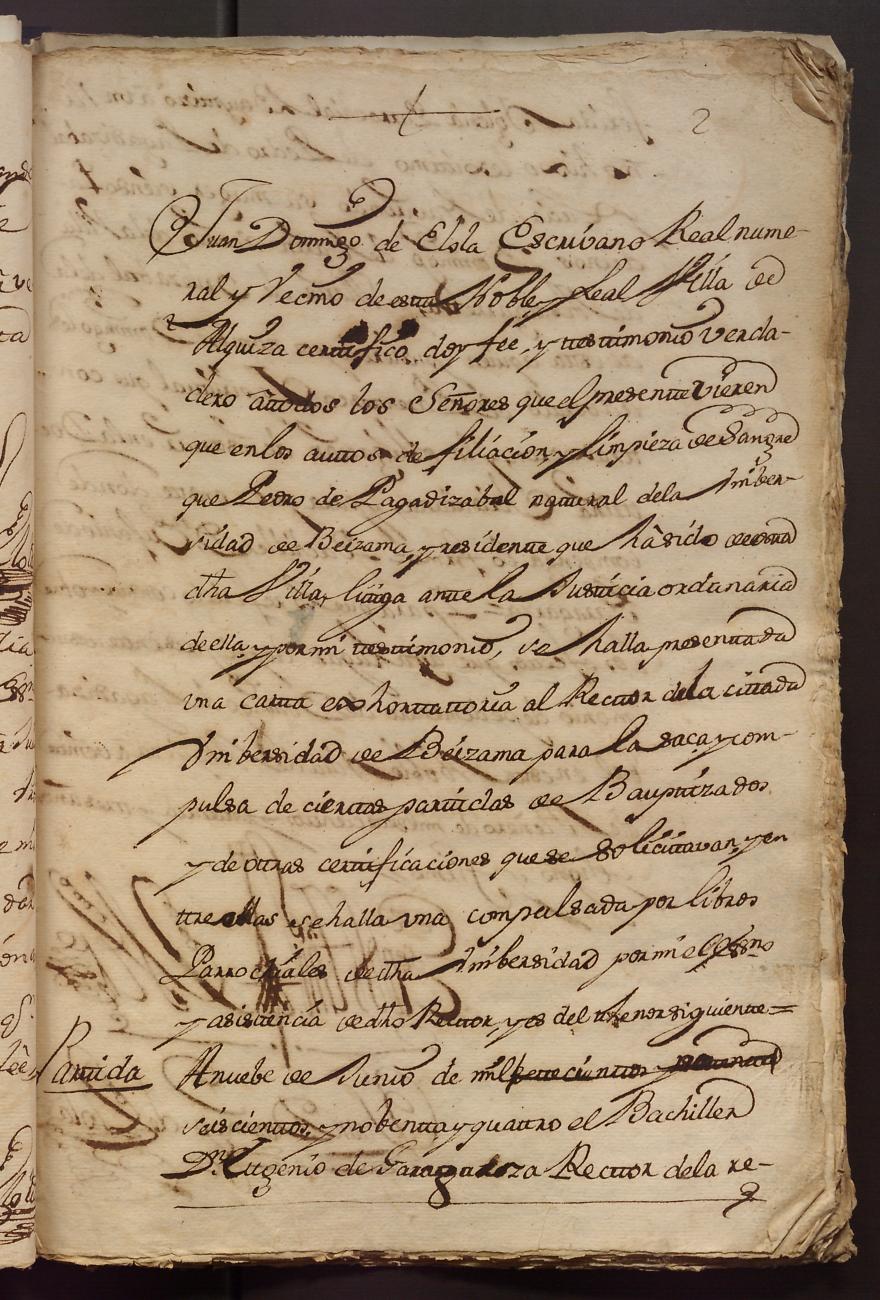 2
Juan Domingo de Elola Escrivano Real nume-
ral y Vecino de esta Noble y Leal Villa de
Alquiza certifico doy fee, y testimonio verda-
dero a todos los Señores que el presente vieren
que en los auttos de filiación y limpieza de Sangre
que Pedro de Pagadizabal natural de la Vniber-
sidad de Beizama, y residente que hà sido de esta
dha Villa, litiga ante la Justicia ordinaria
de ella, y por mi testimonio, se halla presentada
vna carta exhortatoria al Rector de la cittada
Vnibersidad de Beizama para la saca y com-
pulsa de ciertas partidas de Bauptizados
y de ottras certificaciones que se solicittavan, y en
ttre ellas se halla vna compulsada por libros
Parrochiales de dha Vnibersidad por mi el Essno
y asistencia de dho Rector, y es del thenor siguiente=
Partida
A nuebe de Junio de mil settecienttos y
seiscienttos, y nobentta y quattro el Bachiller
Dn. Eugenio de Garagarza Rector de la re-